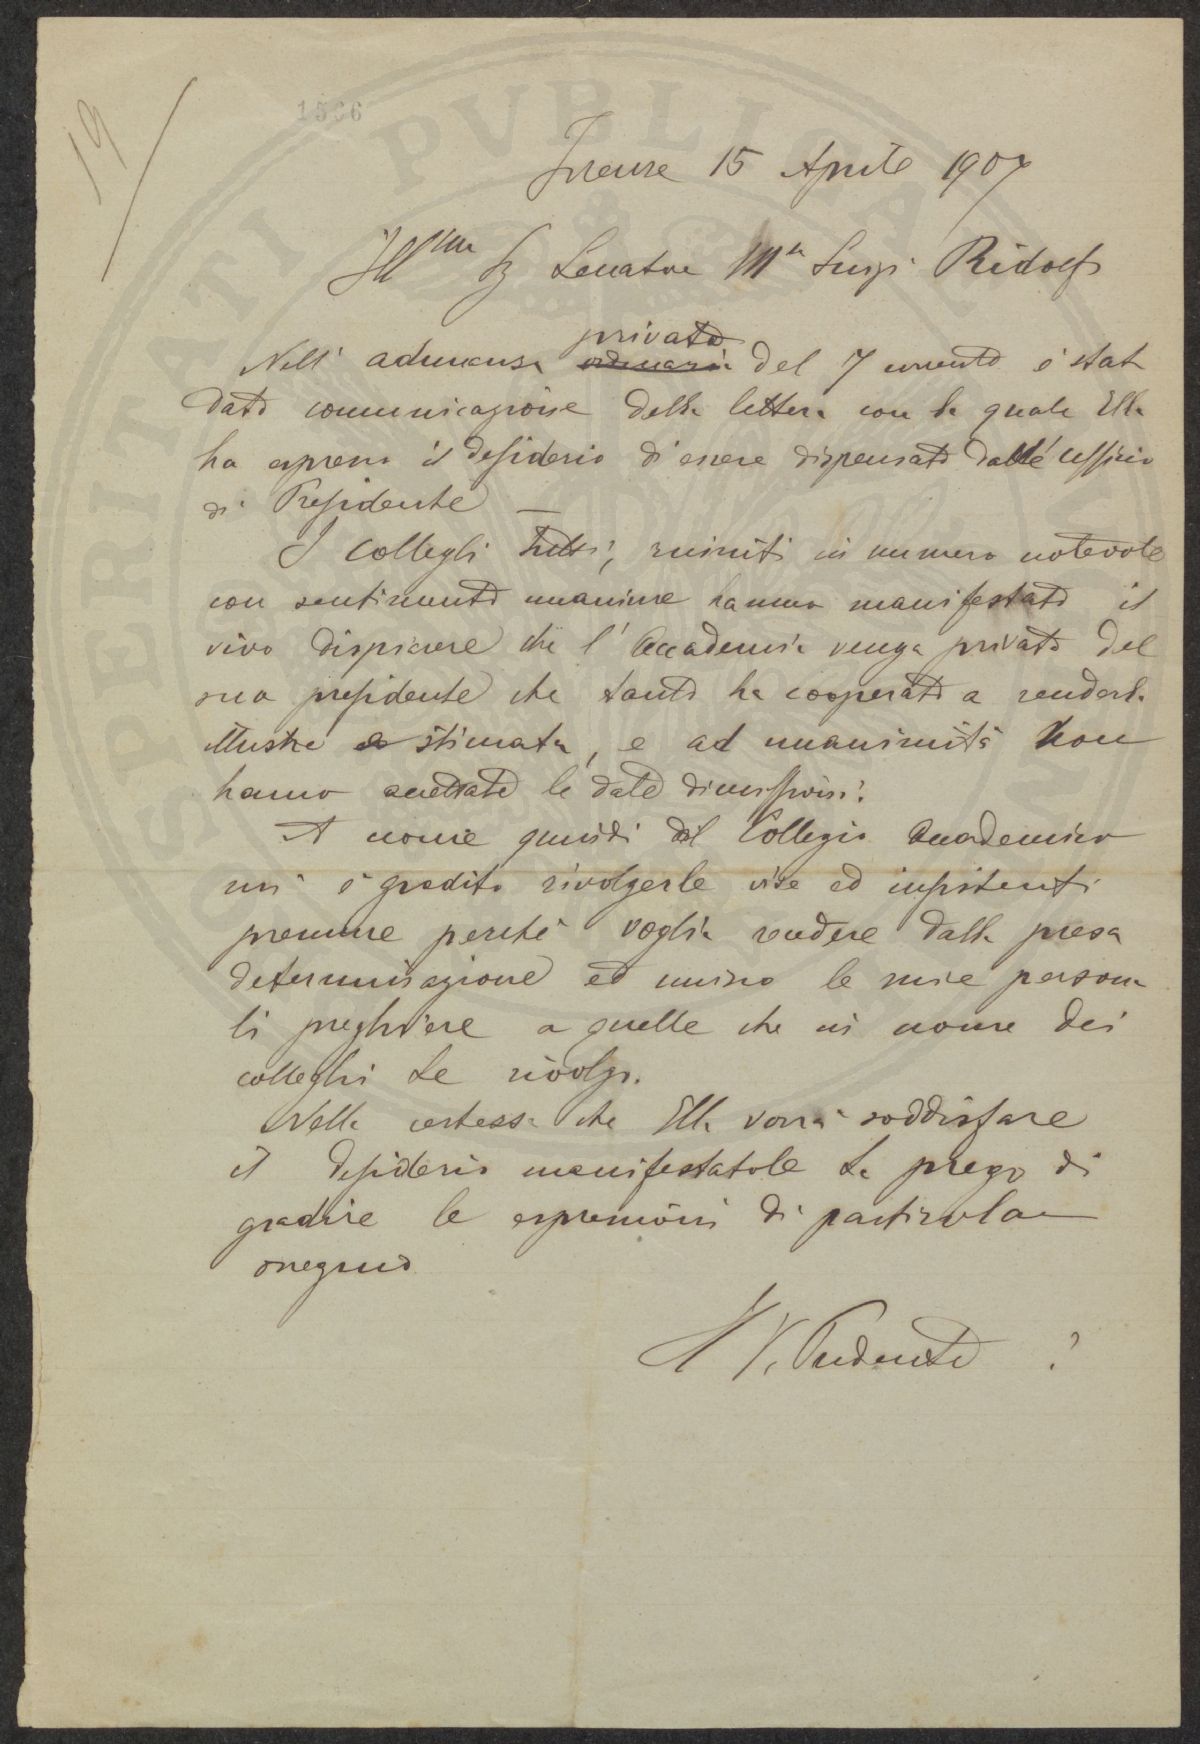 19
1536
Firenze 15 Aprile 1907
Ill^mo Sig Senatore M^se Luigi Ridolfi
privata
Nell' adunanza ordinaria del 7 corrente è stata
data comunicazione della lettera con la quale Ella
ha espresso il desiderio di essere dispensato dall' ufficio
di Presidente —
I Collegli tutti, riuniti in numero notevole
con sentimento unanime hanno manifestato il
vivo dispiacere che l' Accademia venga privata del
suo presidente che tanto ha cooperato a renderla
illustre e stimata, e ad unanimità non
hanno accettate le date dimissioni.
A nome quindi del Collegio Accademico
mi è gradito rivolgerle vive ed insistenti
premure perchè voglia recedere dalla presa
determinazione ed unisco le mie persona
li preghiere a quelle che in nome dei
colleghi Le rivolgo.
Nella certezza che Ella vorrà soddisfare
il desiderio manifestatole La prego di
gradire le espressioni di particolare
ossequio
Il V. Presidente ?
PERITATI PVBLICAE